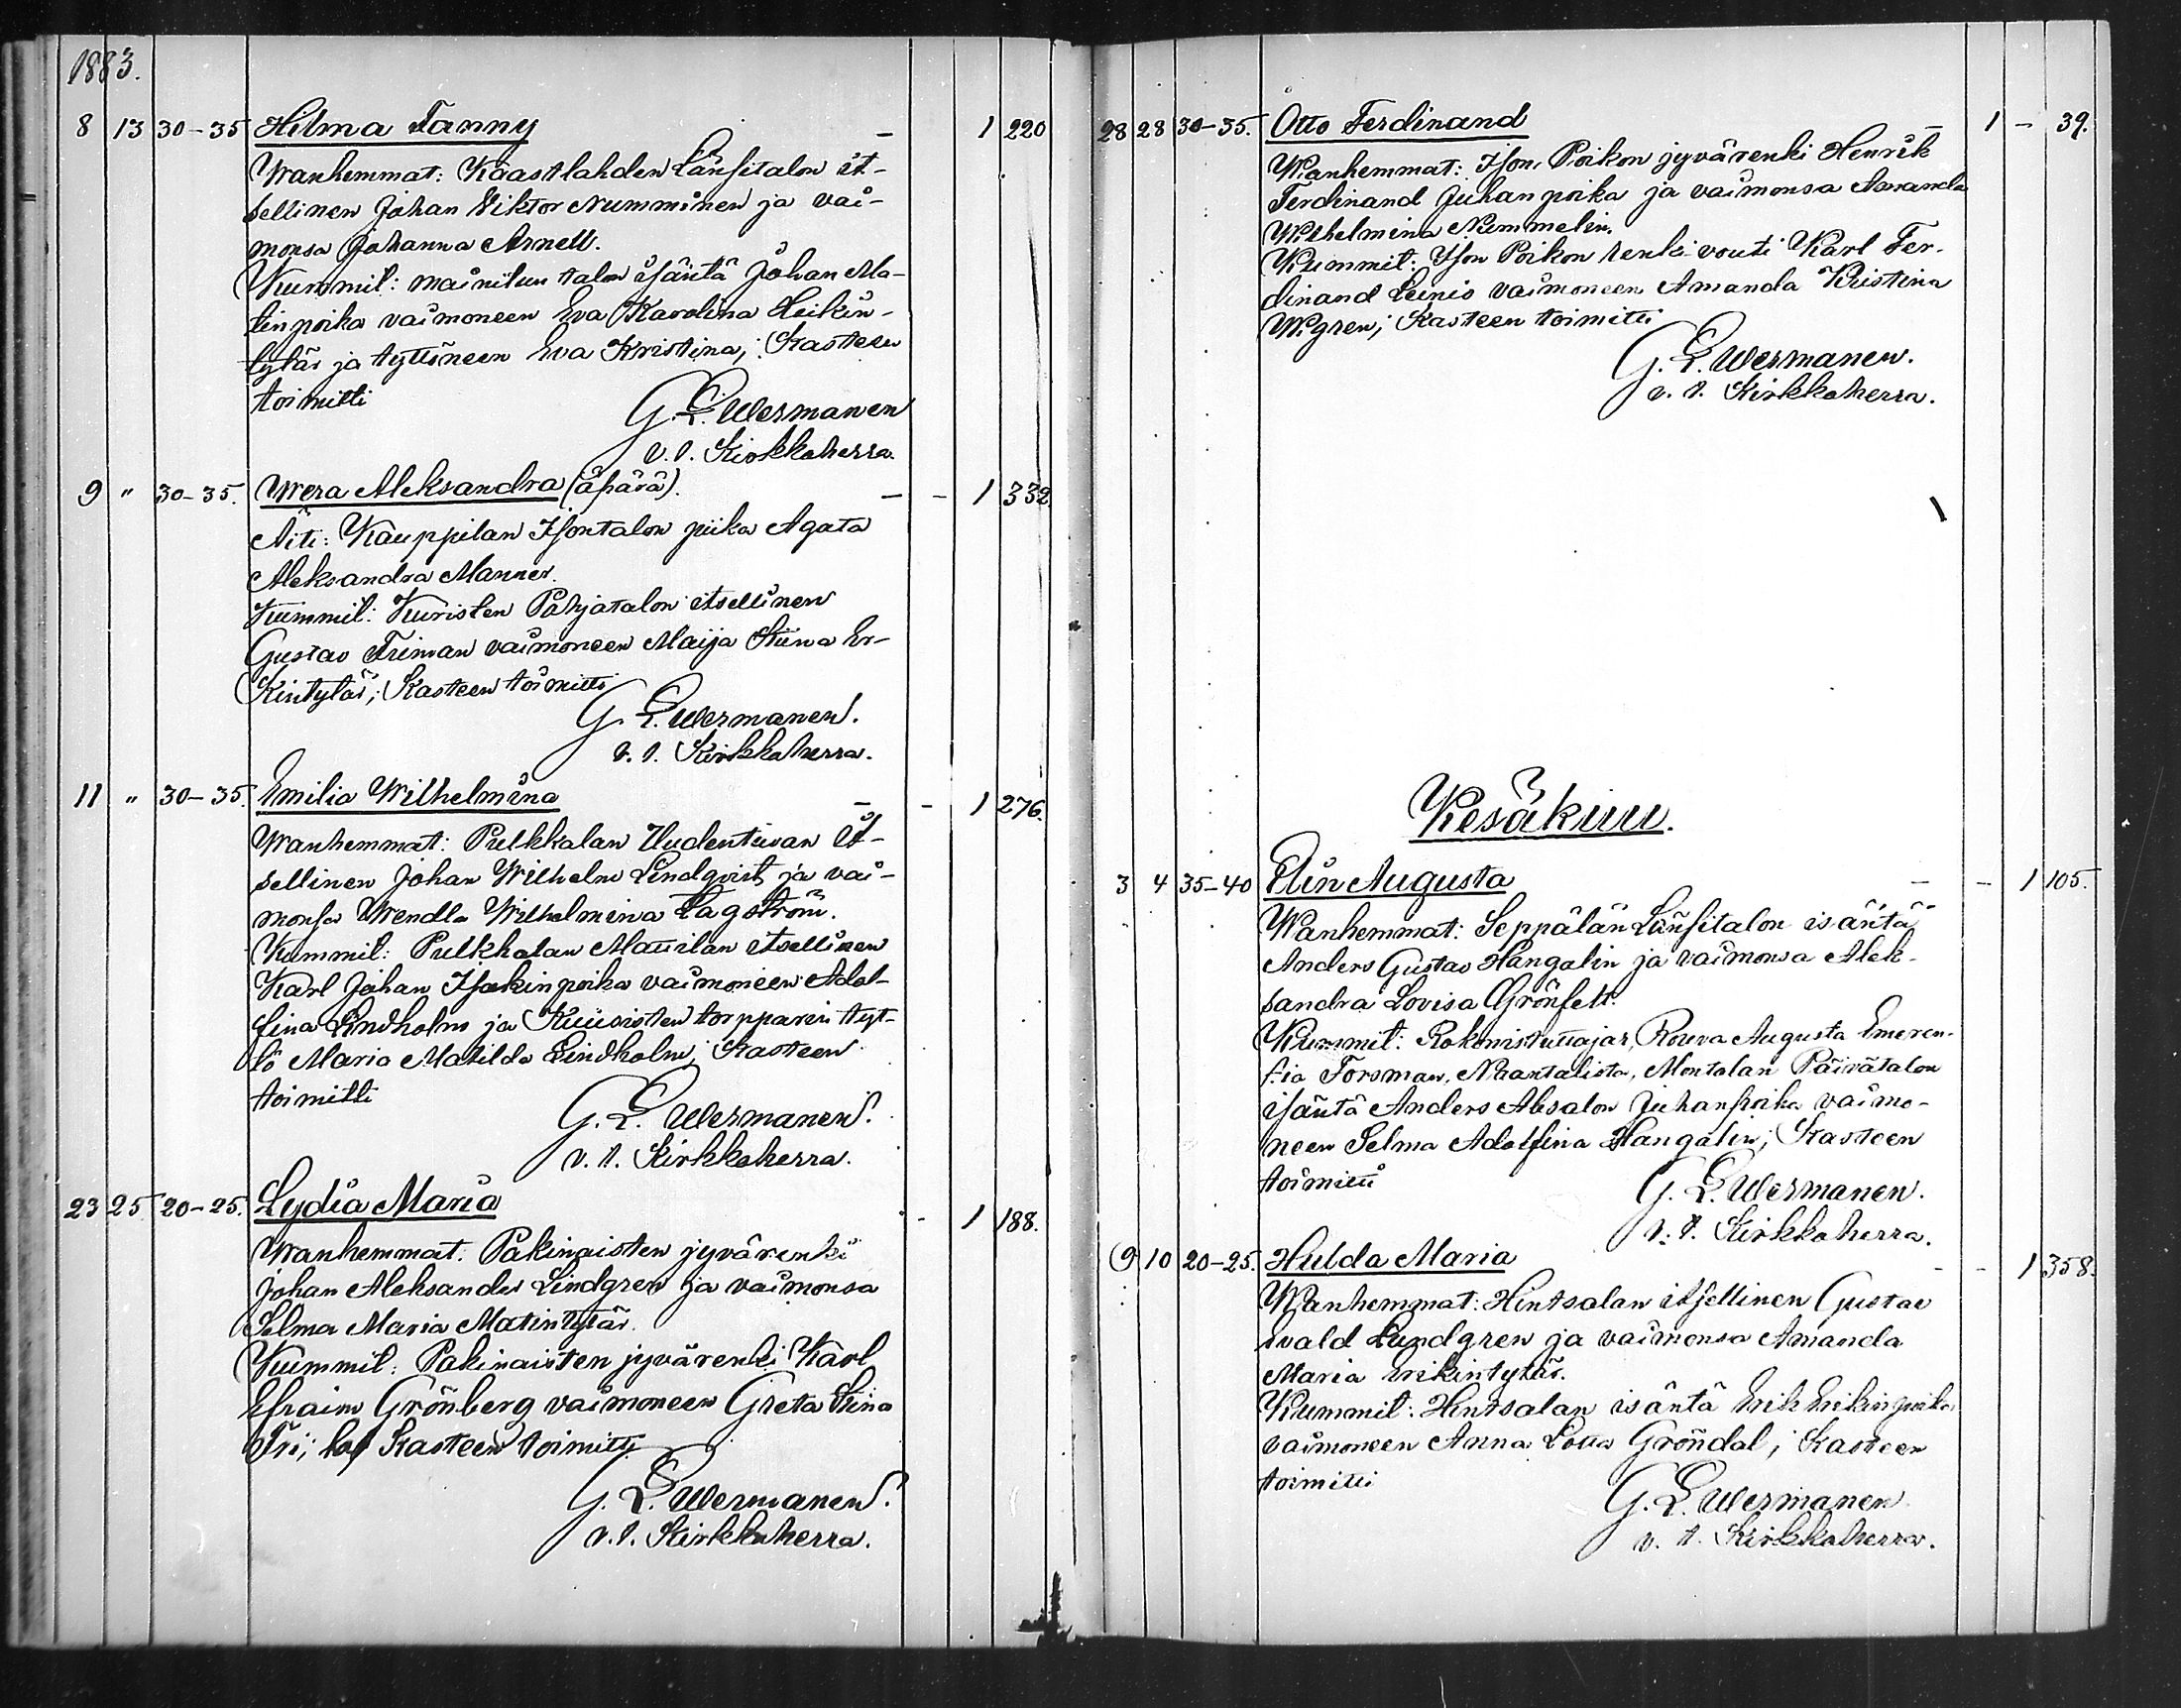 1883.
8 13 30-35 Hilma Fanny - 1 220
Wanhemmat: Kaastlahden Länsitalon it-
sellinen Johan Viktor Numminen ja vai-
monsa Johanna Arnell.
Kummit: mainitun talon isäntä Johan Ma-
tinpoika vaimoneen Eva Karolina Heikin-
tytär ja tyttöneen Eva Kristina; Kasteen
toimitti
G. L. Wermanen
v. t. Kirkkoherra.
9 " 30-35. Wera Aleksandra (äpärä). - - 1 332
Äiti: Kauppilan Isontalon piika Agata
Aleksandra Manner.
Kummit: Kuristen Pahjatalon itsellinen
Gustav Friman vaimoneen Maija Stiina Er-
kintytär; Kasteen toimitti
G. L. Wermanen.
v. t. Kirkkoherra.
11 " 30-35. Emilia Wilhelmina - - 1 276.
Wanhemmat: Pulkkalan Uudentuvan it-
sellinen Johan Wilhelm Lindqvist ja vai-
monsa Wendla Wilhelmina Lagström.
Kummit: Pulkkalan Maurilan itsellinen
Karl Johan Isakinpoika vaimoneen Adol-
fina Lindholm ja Kuusisten torpparin tyt-
tö Maria Matilda Lindholm; Kasteen
toimitti
G. L. Wermanen.
v. t. Kirkkoherra.
23 25 20-25. Lydia Maria - 1 188.
Wanhemmat: Pakinaisten jyvärenki
Johan Aleksander Lindgren ja vaimonsa
Selma Maria Matintytär.
Kummit: Pakinaisten jyvärenki Karl
Efraim Grönberg vaimoneen Greta Stina
Kasteen toimitti
G. L. Wermanen.
v. t. Kirkkoherra.
28 28 30-35. Otto Ferdinand - 1 - 39.
Wanhemmat: Ison Poikon jyvärenki Henrik
Ferdinand Juhanpoika ja vaimonsa Amanda
Wilhelmina Nummelin.
Kummit: Ison Poikon renki-vouti Karl Fer-
dinand Leinis vaimoneen Amanda Kristina
Wigren; Kasteen toimitti
G. L. Wermanen.
v. t. Kirkkoherra.
Kesäkuu.
3 4 35-40 Elin Augusta - - 1 105.
Wanhemmat: Seppälän Länsitalon isäntä
Anders Gustav Hangelin ja vaimonsa Alek-
sandra Lovisa Grönfelt.
Kummit: Rokonistuttajar, Rouva Augusta Emeren-
sia Forsman, Naantalista, Montolan Päivätalon
isäntä Anders Absalon Juhanpoika vaimo-
neen Selma Adolfina Hangelin; Kasteen
toimitti
G. L. Wermanen.
v. t. Kirkkoherra.
9 10 20-25. Hulda Maria - - 1 358.
Wanhemmat: Hintsalan itsellinen Gustav
Evald Lundgren ja vaimonsa Amanda
Maria Erikintytär.
Kummit: Hintsalan isäntä Erik Erikinpoika
vaimoneen Anna Lotta Gröndal; Kasteen
toimitti
G. L. Wermanen
v. t. Kirkkoherra.